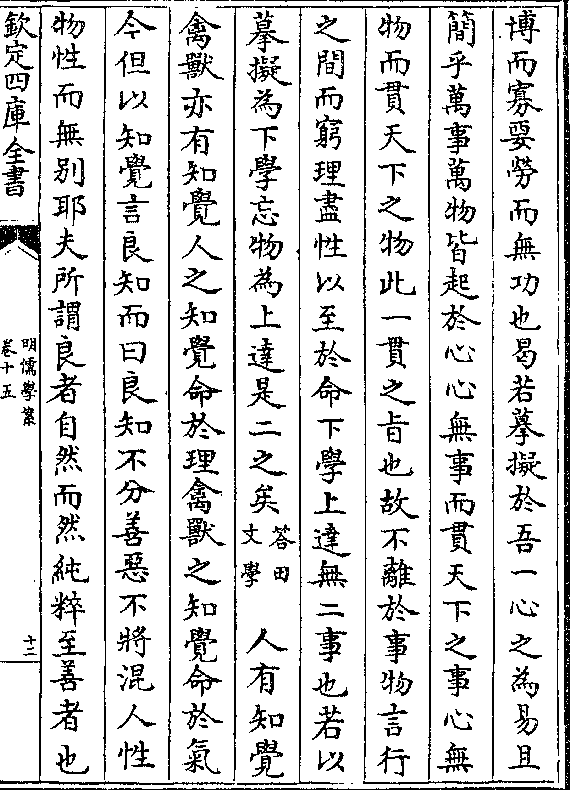 博而寡要勞而無功也曷若摹擬於吾一心之為易且
簡乎萬事萬物皆起於心心無事而貫天下之事心無
物而貫天下之物此一貫之旨也故不離於事物言行
之間而窮理盡性以至於命下學上達無二事也若以
摹擬為下學忘物為上達是二之矣
答田
文學
人有知覺
禽獸亦有知覺人之知覺命於理禽獸之知覺命於氣
今但以知覺言良知而曰良知不分善惡不將混人性
物性而無別耶夫所謂良者自然而然純粹至善者也
欽定四庫全書
明儒學案
卷十五
十二